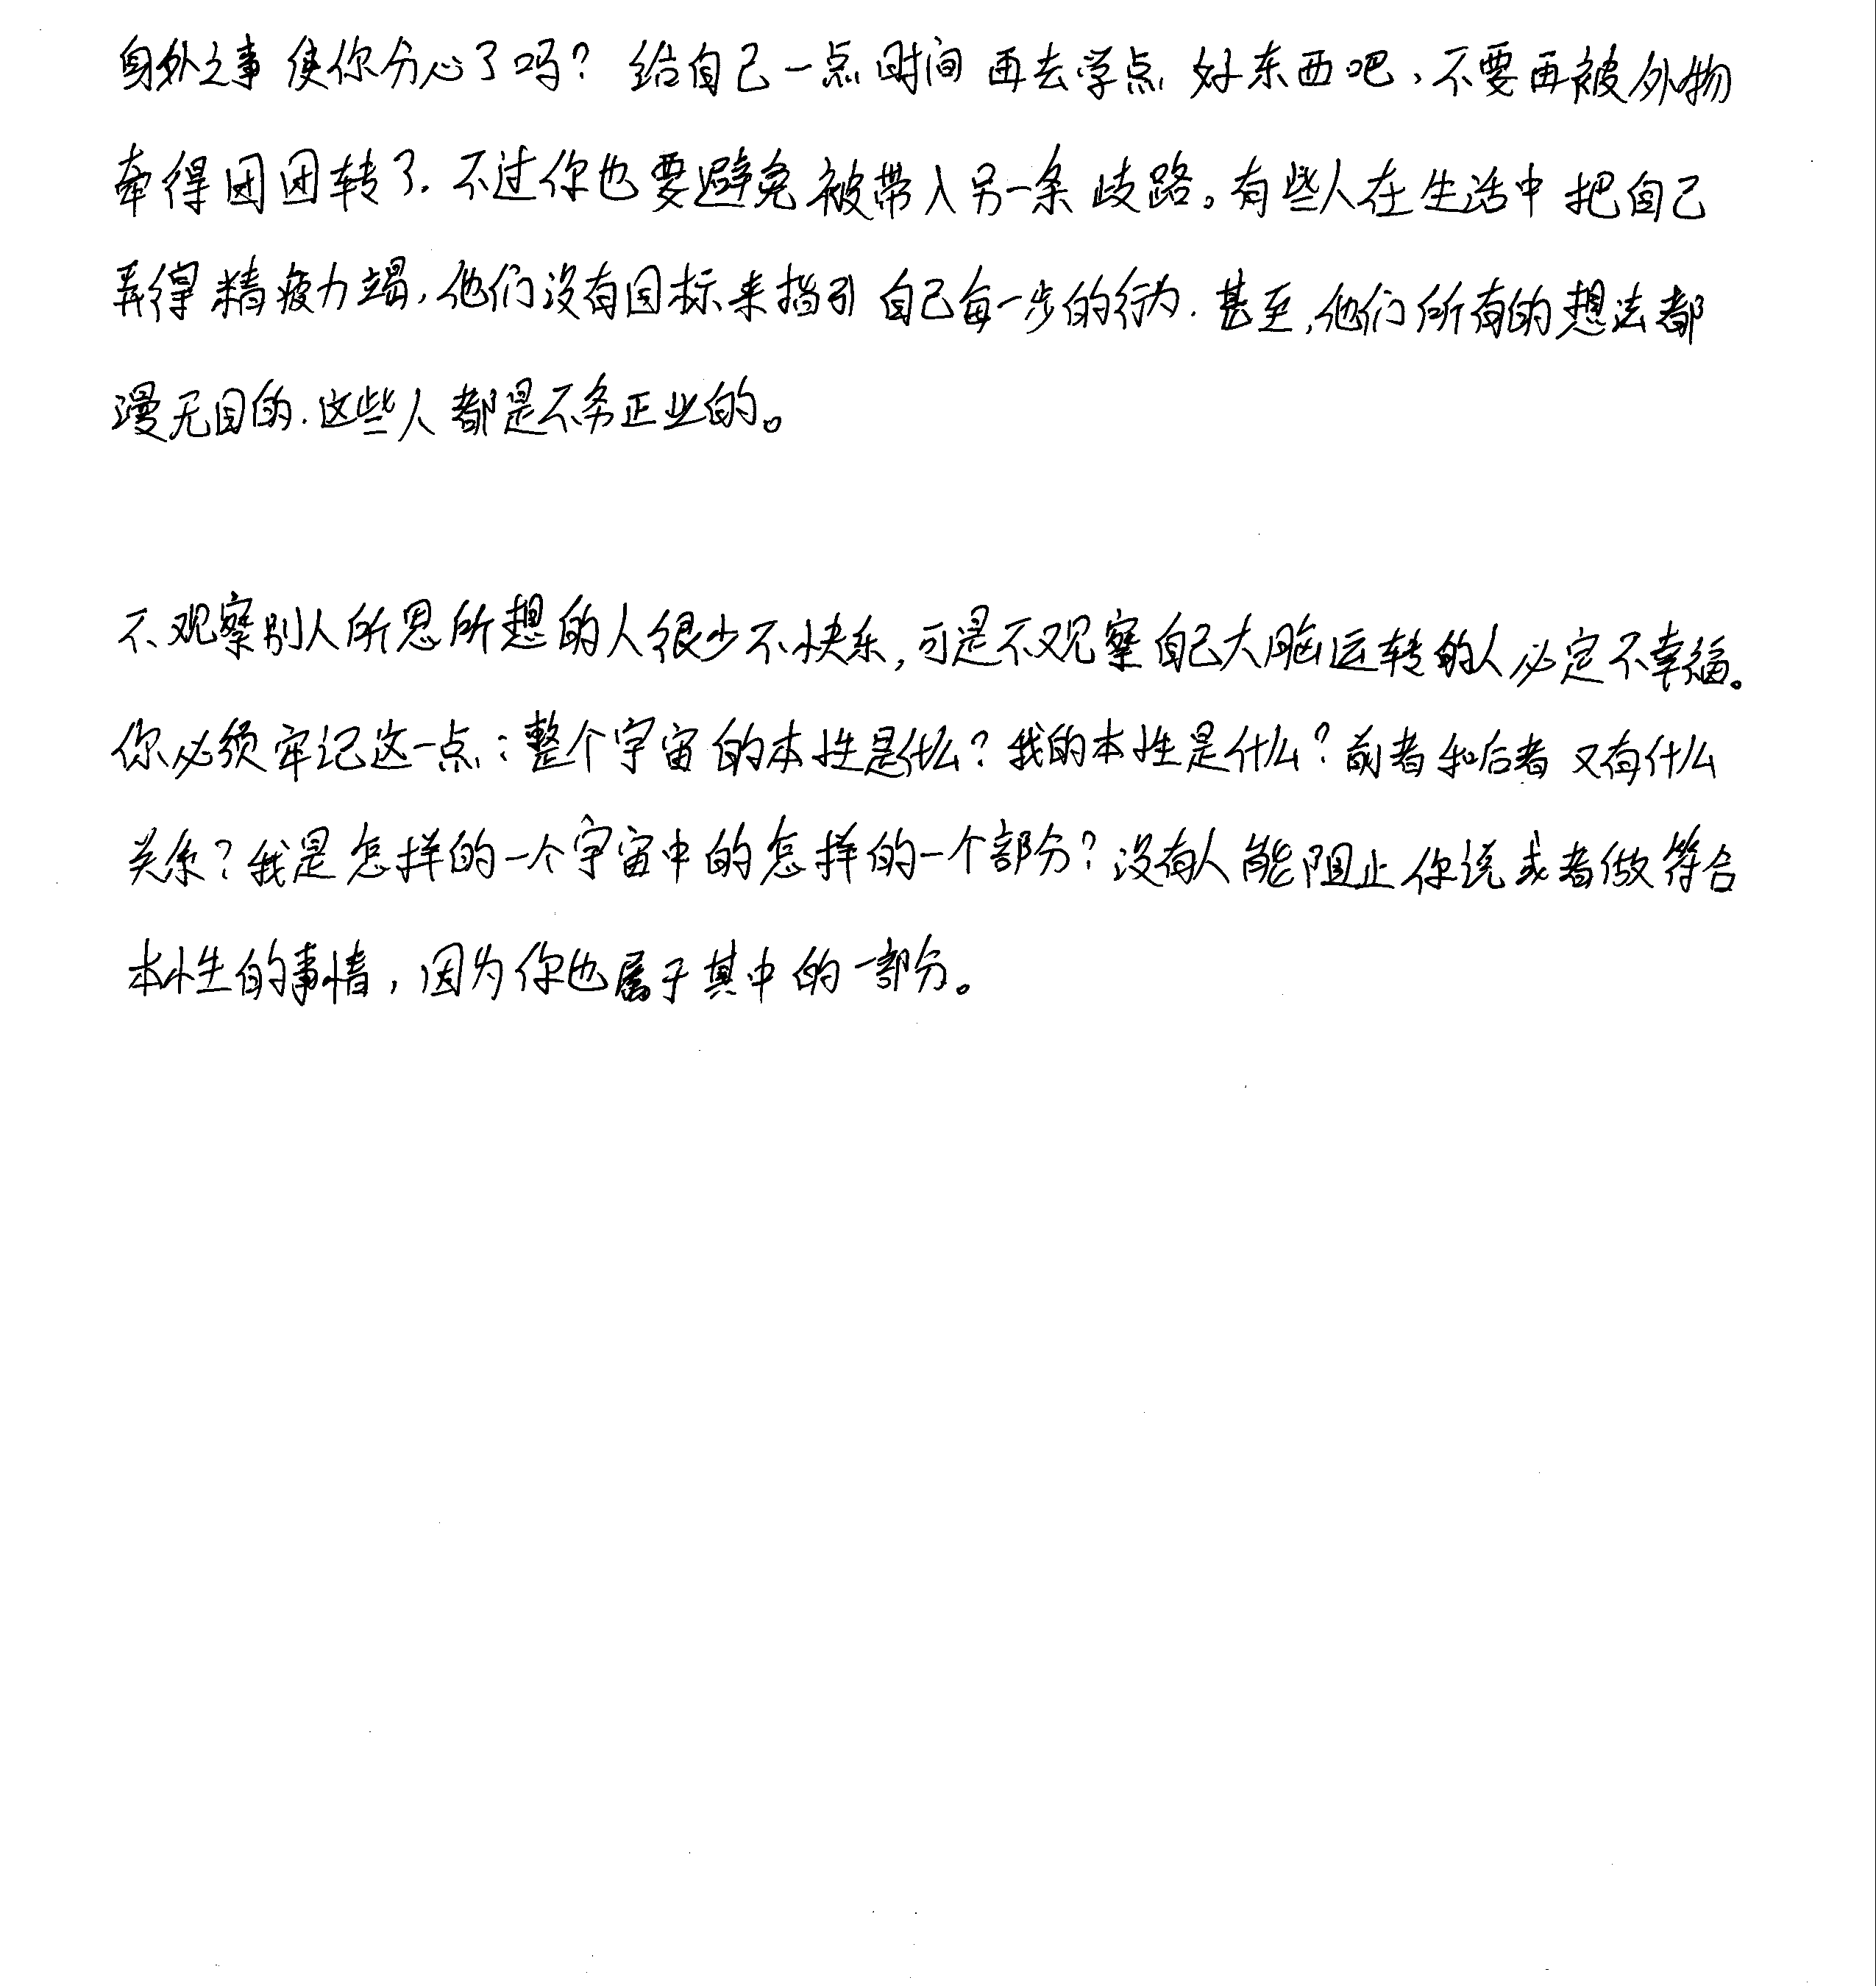 身外之事使你分心了吗？给自己一点时间再去学点好东西吧，不要再被外物
牵得团团转了．不过你也要避免被带入另一条歧路。有些人在生活中把自己
弄得精疲力竭，他们没有目标来指引自己每一步的行为．甚至，他们所有的想法都
漫无目的．这些人都是不务正业的。
不观察别人所思所想的人很少不快乐，可是不观察自己大脑运转的人必定不幸福。
你必须牢记这一点：整个宇宙的本性是什么？我的本性是什么？前者和后者又有什么
关系？我是怎样的一个宇宙中的怎样的一个部分？没有人能阻止你说或者做符合
本性的事情，因为你也属于其中的一部分。